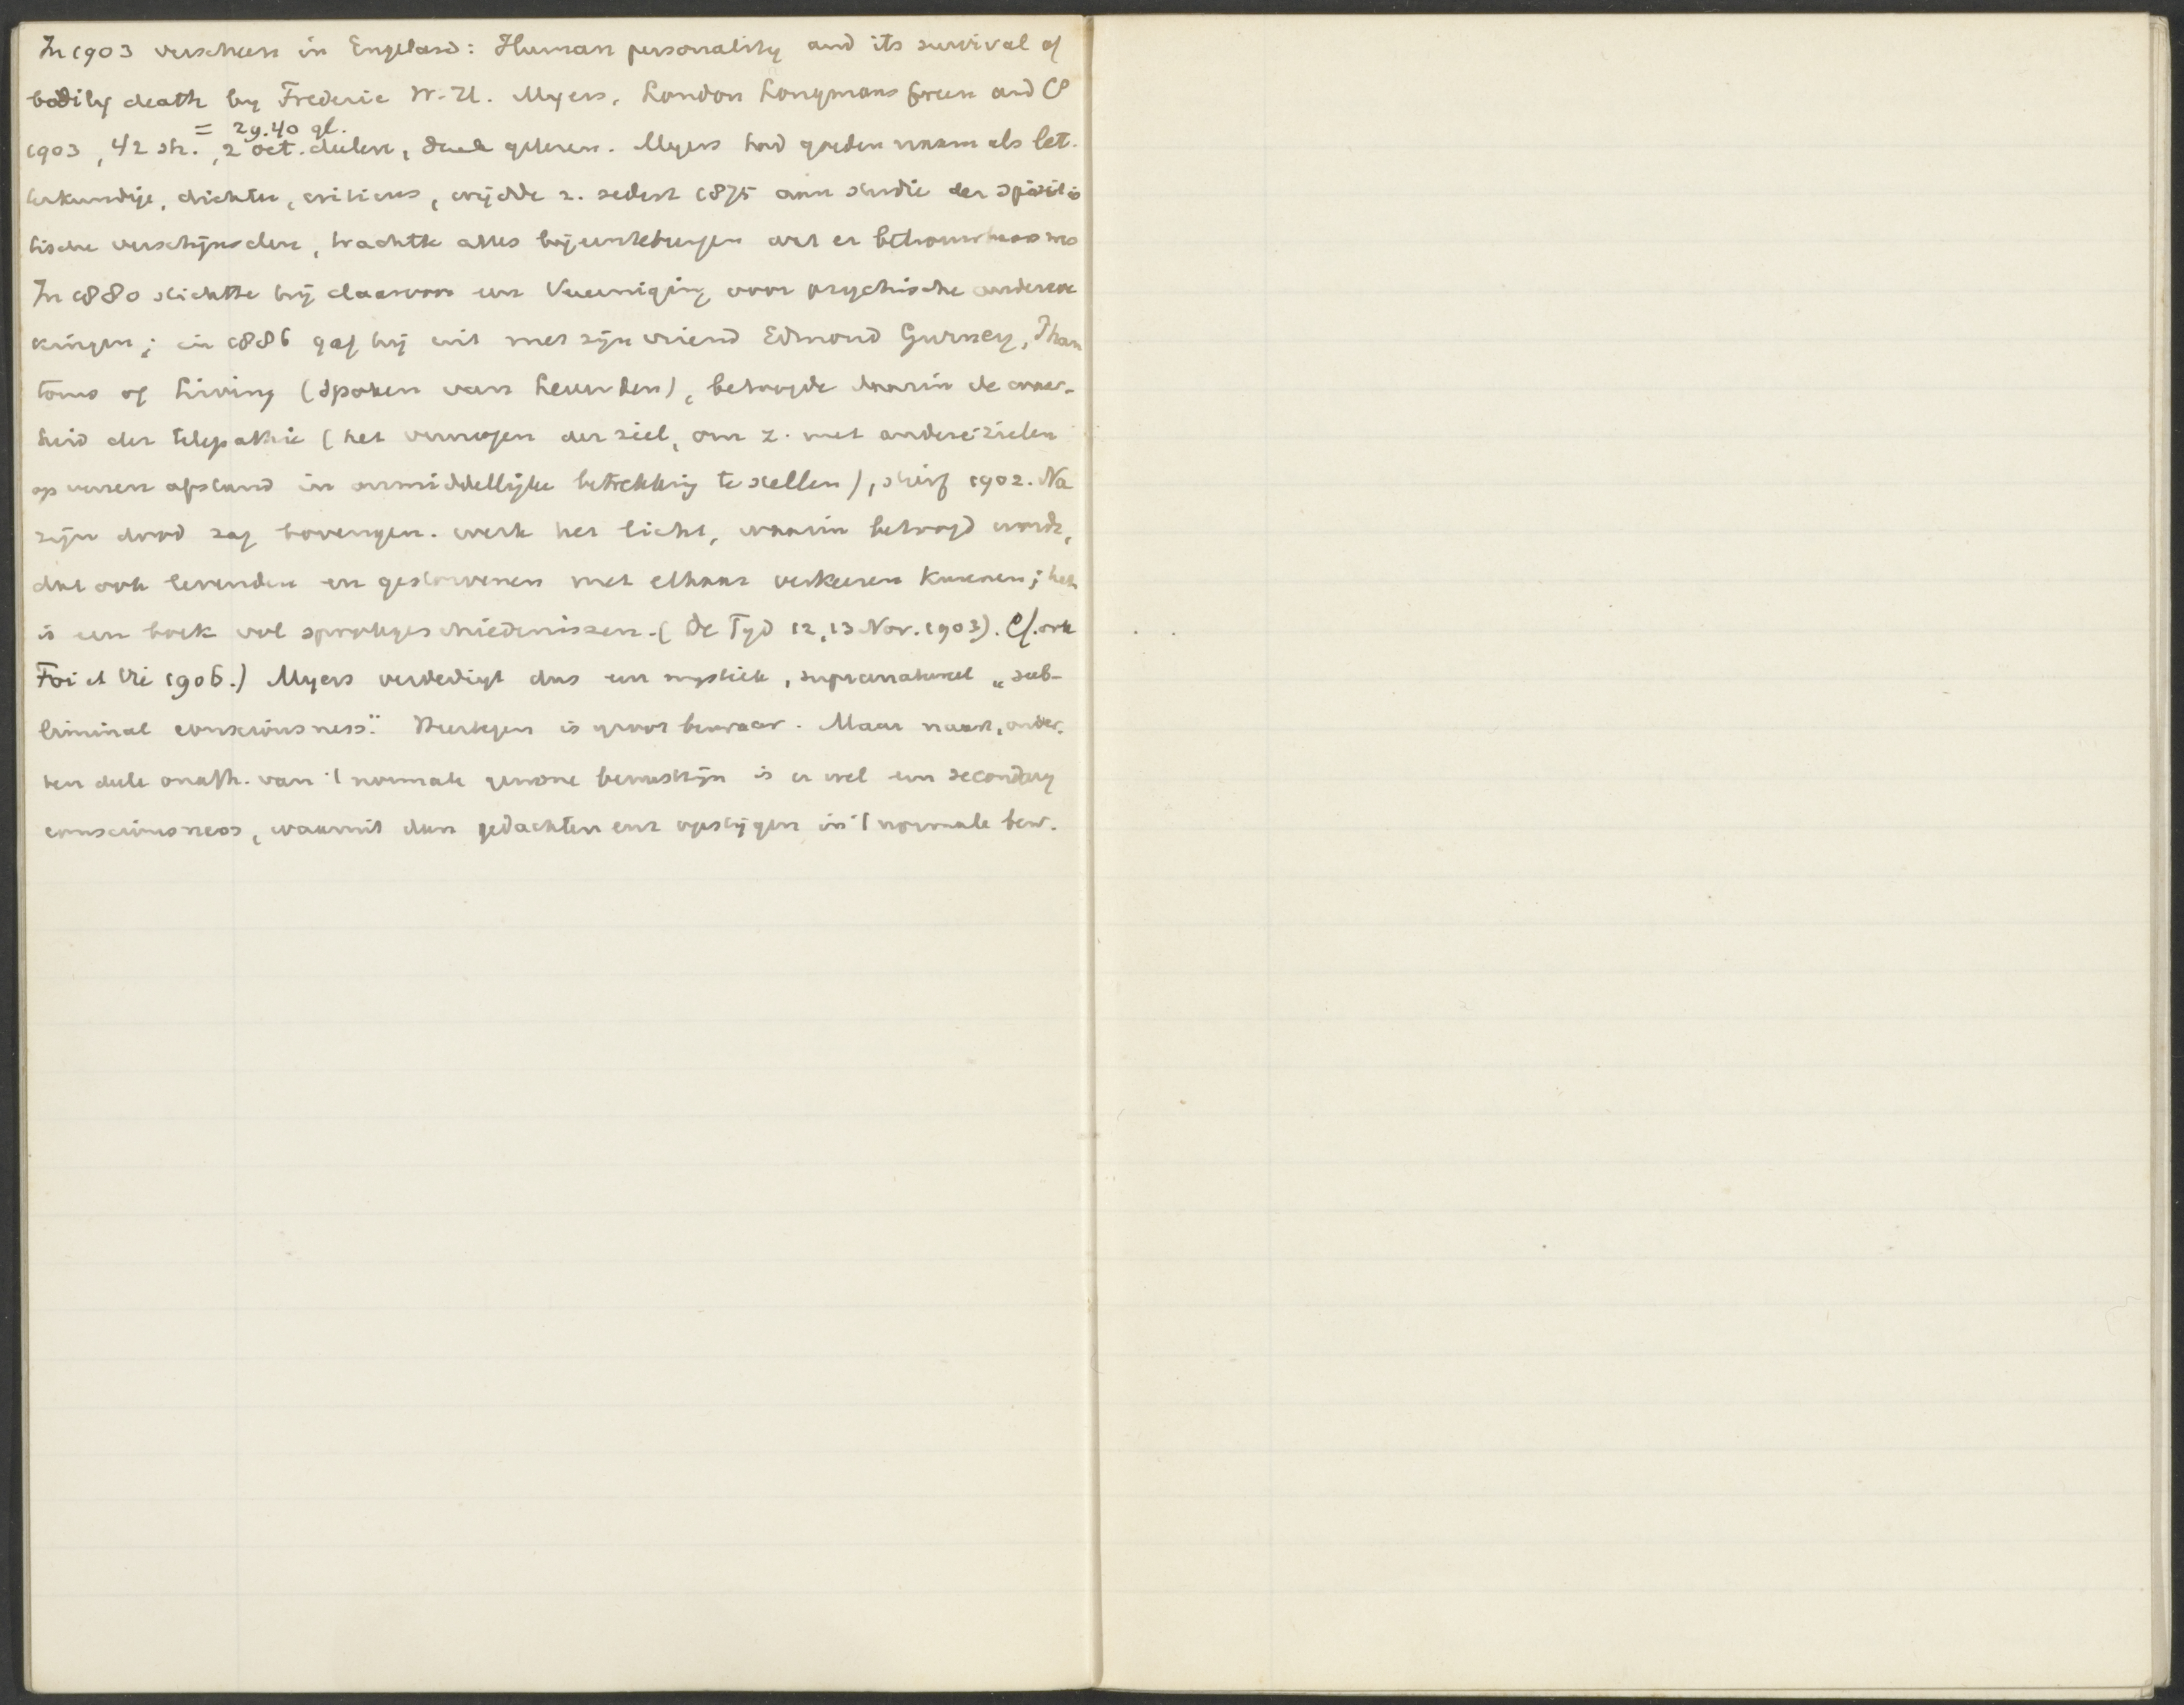 In 1903 verscheen in Engeland: Human personality and its survival of
bodily death by Frederic W. H. Myers, London Longmans Green and Co
= 29.40 gl.
1903, 42 sh., 2 oct. deelen, geheven. Myers had goeden naam als let-
terkundige, dichter, criticus, wijdde z. sedert 1875 aan studie der spiritis
tische verschijnselen, trachtte alles bijeentebrengen wat er betrouwbaars was
In 1880 stichtte hij daarvoor een Vereeniging voor psychische onderzoe
kingen; in 1886 gaf hij uit met zijn vriend Edmond Gurney, Phan
toms of Living (spoken van Levenden), betoogde daarin de waar-
heid der telepathie (het vermogen der ziel, om z. met andere zielen
op verren afstand in onmiddellijke betrekking te stellen), stierf 1902. Na
zijn dood zag bovengen. werk het licht, waarin betoogd wordt,
dat ook levenden en gestorvenen met elkaar verkeeren kunnen; het
is een boek vol spookgeschiedenissen. (De Tyd 12, 13 Nov. 1903). Cf. ook
Foi et Vie 1906.) Myers verdedigt dus een mystiek, supranatureel „sub-
liminal consciousness." Hiertegen is groot bezwaar. Maar naast, onder,
ten deele onafh. van 't normale gewone bewustzijn is er wel een secondary
consciousness, waaruit dan gedachten enz opstijgen in 't normale bew.